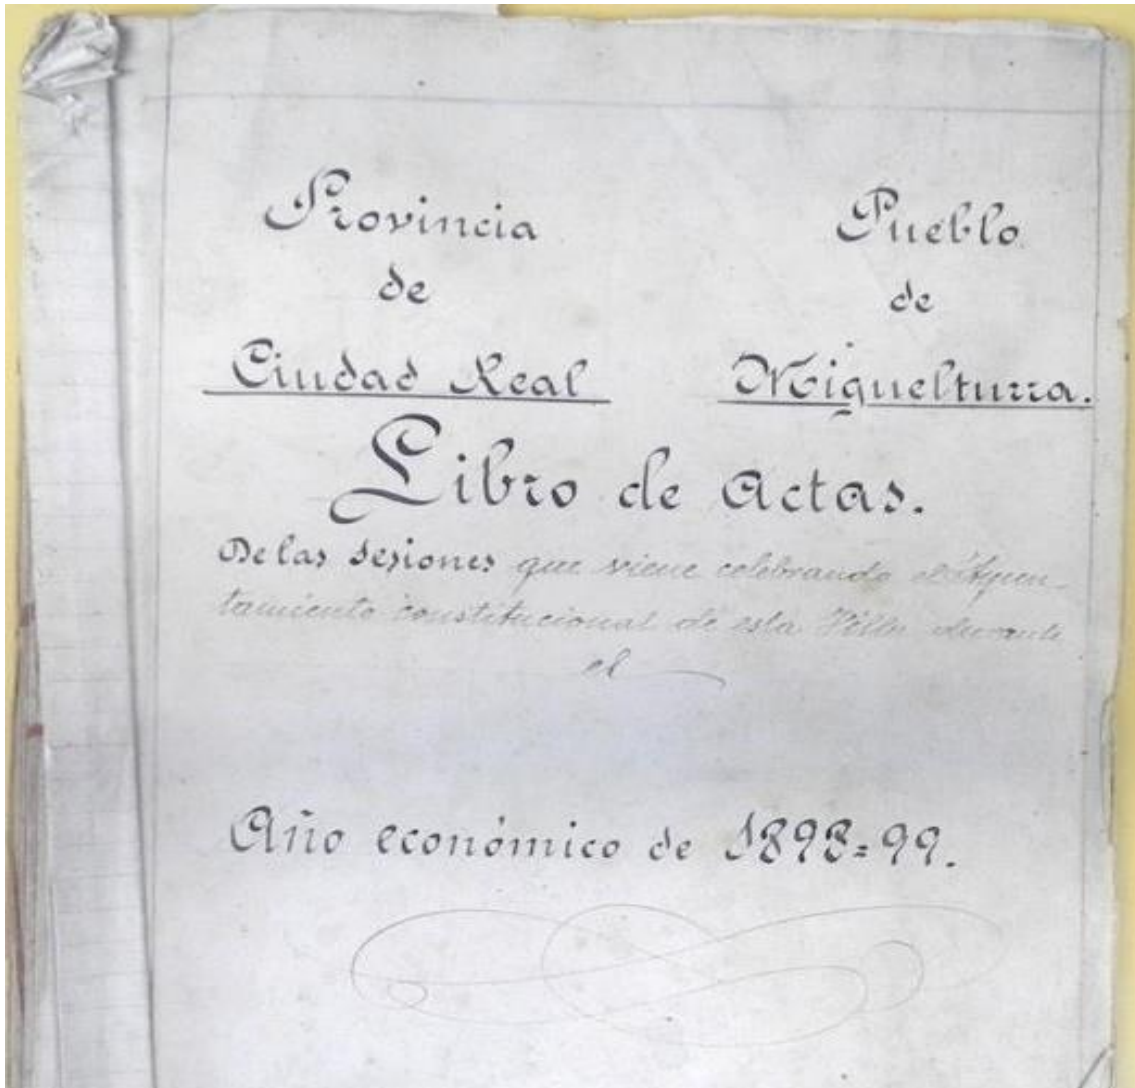 Provincia
de
Ciudad Real
Pueblo
de
Miguelturra.
Libro de Actas.
De las sesiones que viene celebrando el Ayun-
tamiento constitucional de esta Villa durante
el
Año económico de 1898=99.